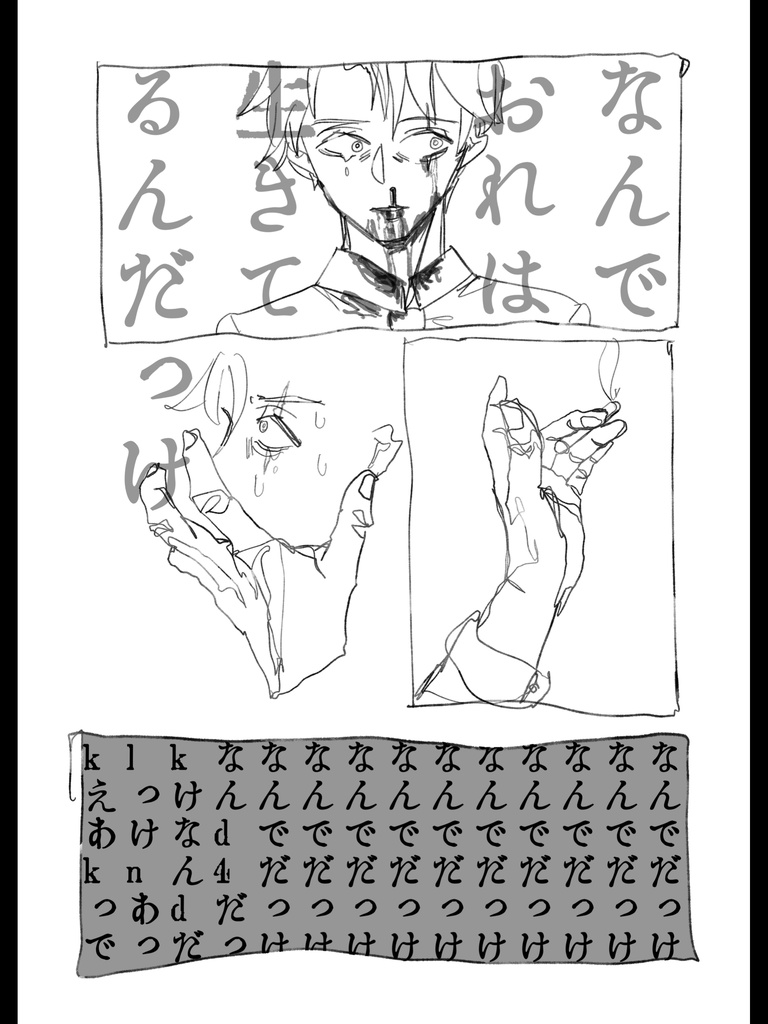 なんで
おれは
生きて
るんだっけ
なんでだっけ
なんでだっけ
なんでだっけ
なんでだっけ
なんでだっけ
なんでだっけ
なんでだっけ
なんでだっけ
なんでだっけ
なんでだっけ
なんd4だっ
kけなんdだ
lっけnあっ
kえあkっで